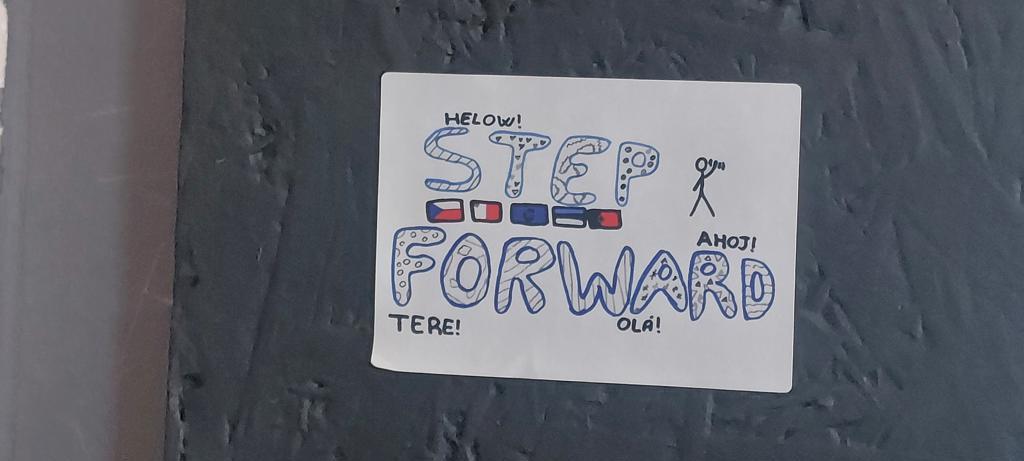 HELOW!
STEP
FORWARD
AHOJ!
TERE!
OLÁ!